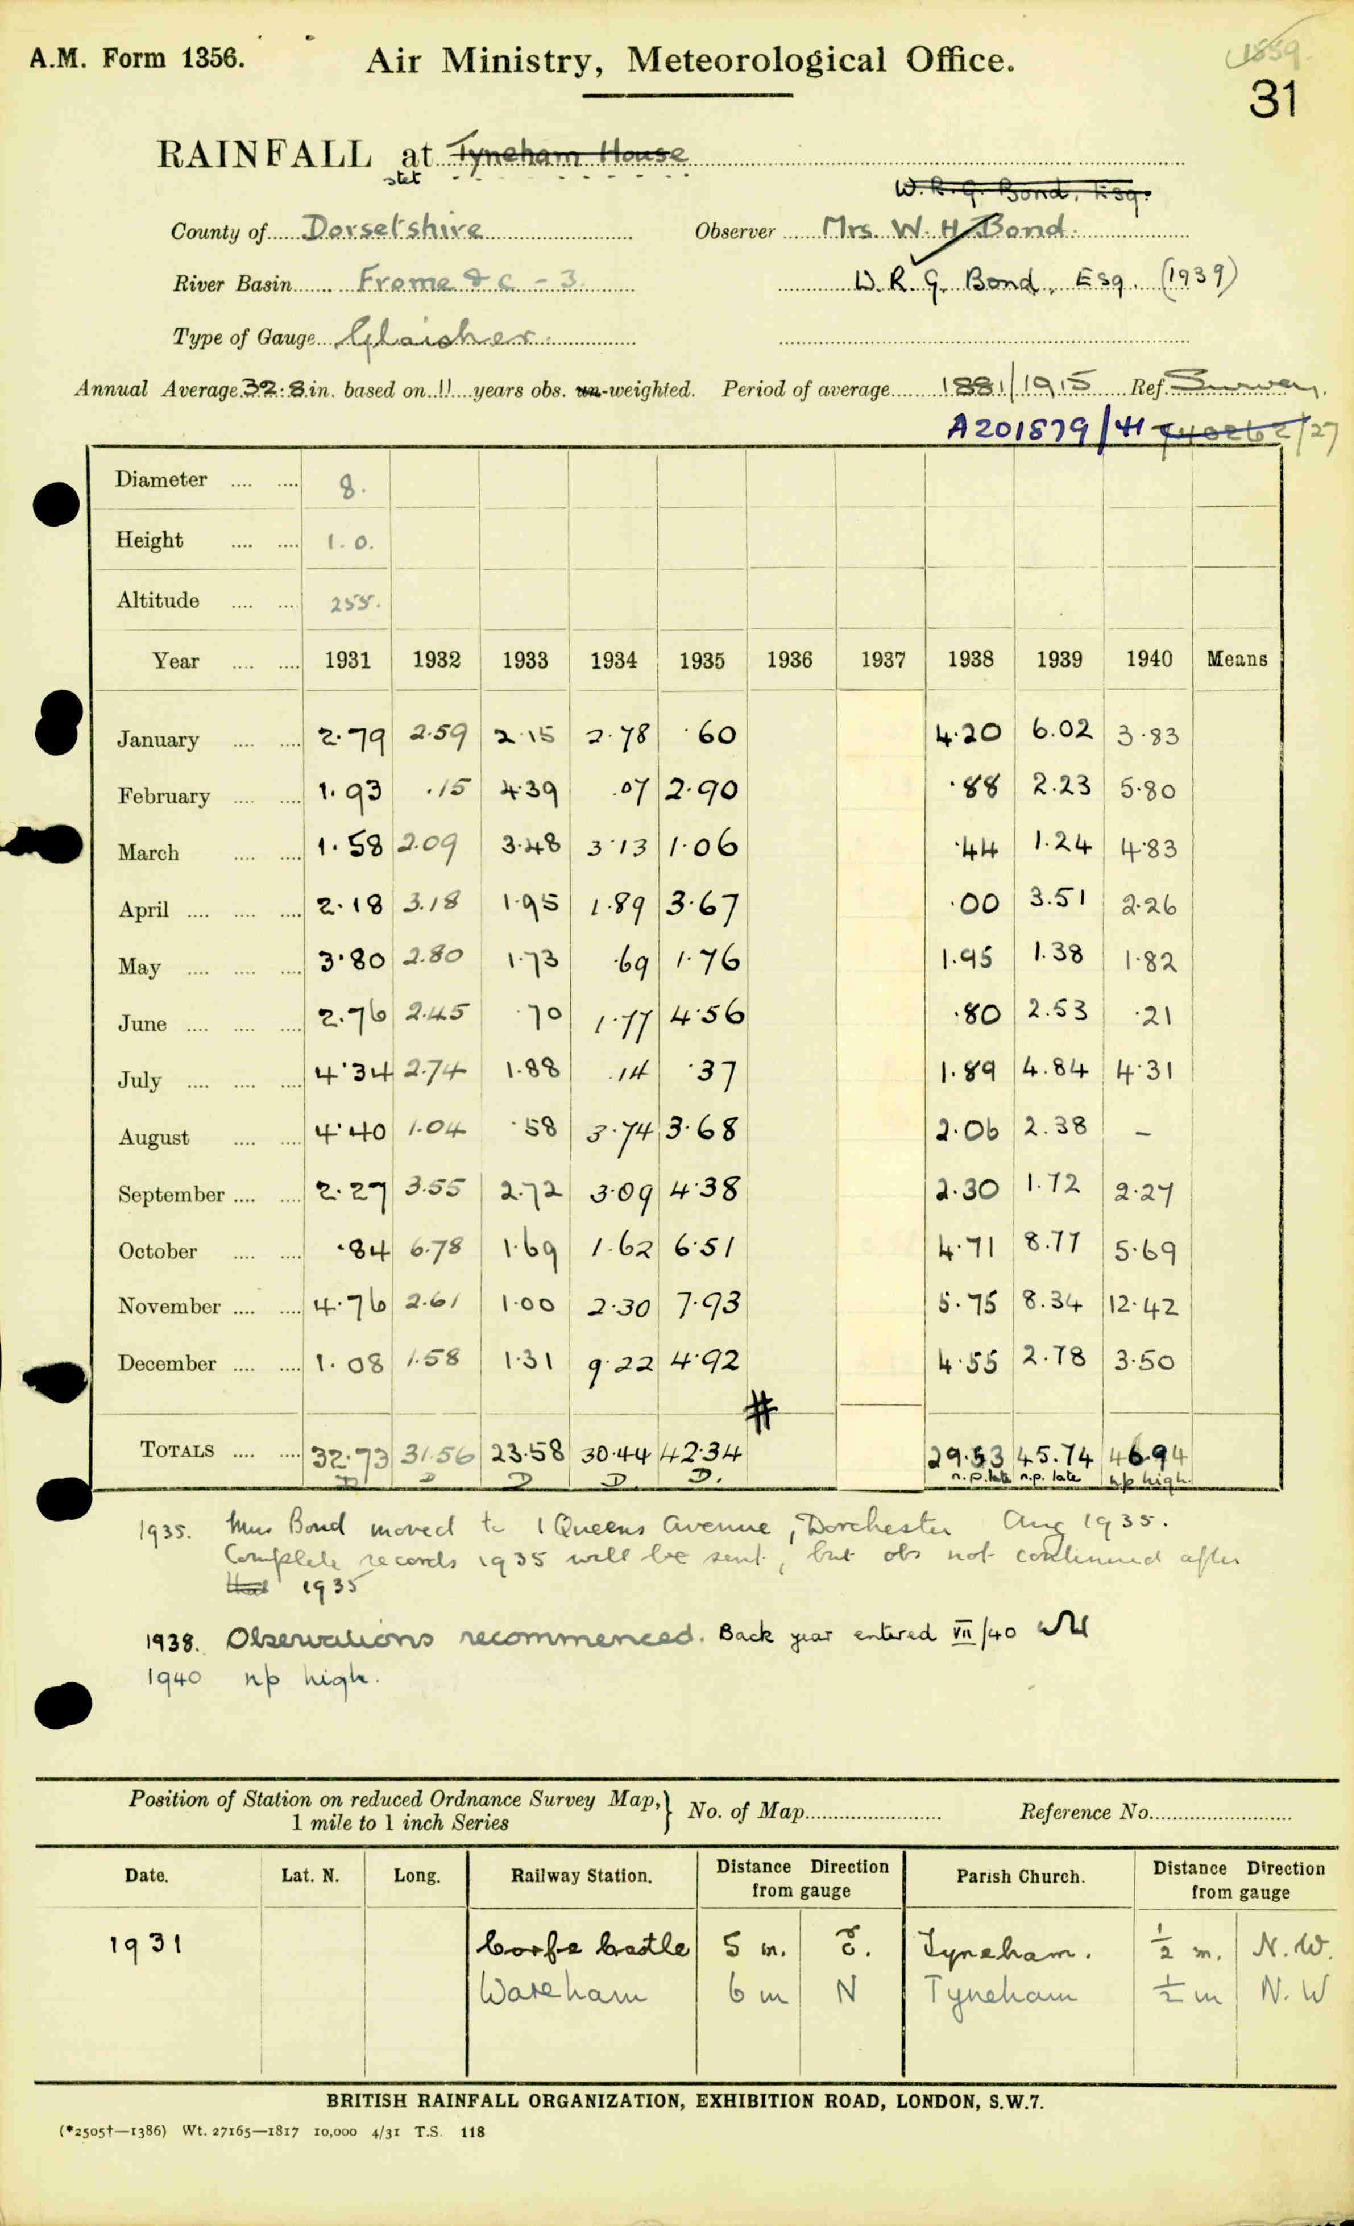 A.M. Form 1356.
Air Ministry, Meteorological Office.
1559
31
RAINFALL at Tyneham House
stet
W. R. G. Bond, Esq.
County of Dorsetshire Observer Mrs. W. H. Bond.
River Basin Frome & c - 3 W. R. G. Bond, Esq. (1939)
Type of Gauge Glaisher.
Annual Average 32.8 in. based on 11 years obs. un-weighted. Period of average 1881/1915 Ref. Survey.
A201879/41 740262/27
Diameter .... .... 8.
Height .... .... 1.0.
Altitude .... .... 255.
Year .... .... 1931 1932 1933 1934 1935 1936 1937 1938 1939 1940 Means
January .... .... 2.79 2.59 2.15 2.78 .60 4.20 6.02 3.83
February .... .... 1.93 .15 4.39 .07 2.90 .88 2.23 5.80
March .... .... 1.58 2.09 3.48 3.13 1.06 .44 1.24 4.83
April .... .... .... 2.18 3.18 1.95 1.89 3.67 .00 3.51 2.26
May .... .... .... 3.80 2.80 1.73 .69 1.76 1.95 1.38 1.82
June .... .... .... 2.76 2.45 .70 1.77 4.56 .80 2.53 .21
July .... .... .... 4.34 2.74 1.88 .14 .37 1.89 4.84 4.31
August .... .... 4.40 1.04 .58 3.74 3.68 2.06 2.38 –
September .... .... 2.27 3.55 2.72 3.09 4.38 2.30 1.72 2.27
October .... .... .84 6.78 1.69 1.62 6.51 4.71 8.77 5.69
November .... .... 4.76 2.61 1.00 2.30 7.93 5.75 8.34 12.42
December .... .... 1.08 1.58 1.31 9.22 4.92 4.55 2.78 3.50
#
TOTALS .... .... 32.73 31.56 23.58 30.44 42.34 29.53 45.74 46.94
D D D D. D. n.p. late n.p. late n/p high.
1935. Mrs Bond moved to 1 Queens Avenue, Dorchester Aug 1935.
Complete records 1935 will be sent, but obs not continued after
that 1935
1938. Observations recommenced. Back year entered VII/40
1940 n/p high.
Position of Station on reduced Ordnance Survey Map,} No. of Map Reference No.
1 mile to 1 inch Series
Date. Lat. N. Long. Railway Station. Distance Direction from gauge Parish Church. Distance Direction from gauge
1931 Corfe Castle 5 m. E. Tyneham. ½ m. N.W.
Wareham 6 m N Tyneham ½ m N.W
BRITISH RAINFALL ORGANIZATION, EXHIBITION ROAD, LONDON, S.W.7.
(*2505†—1386) Wt. 27165—1817 10,000 4/31 T.S. 118